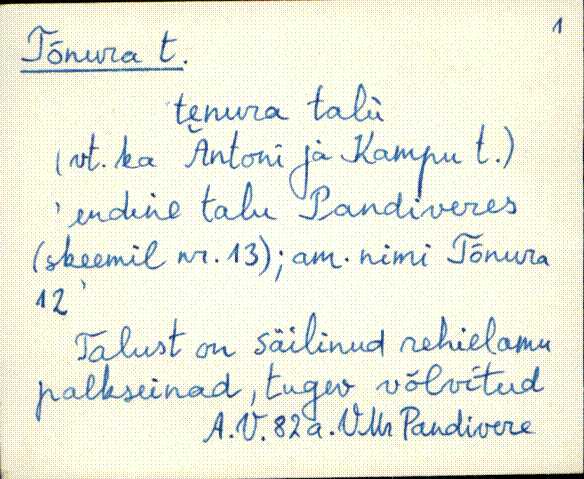 1
Tõnura t.
tenura talù
(vt. ka Äntoni ja Kampu t.)
' endine talu Pandiveres
(skeemil nr. 13); am. nimi Tõnura
12'
Talust on säilinud rehielamu
palkseinad, tugev võlvitud
A.V. 82a. VMr Pandivere